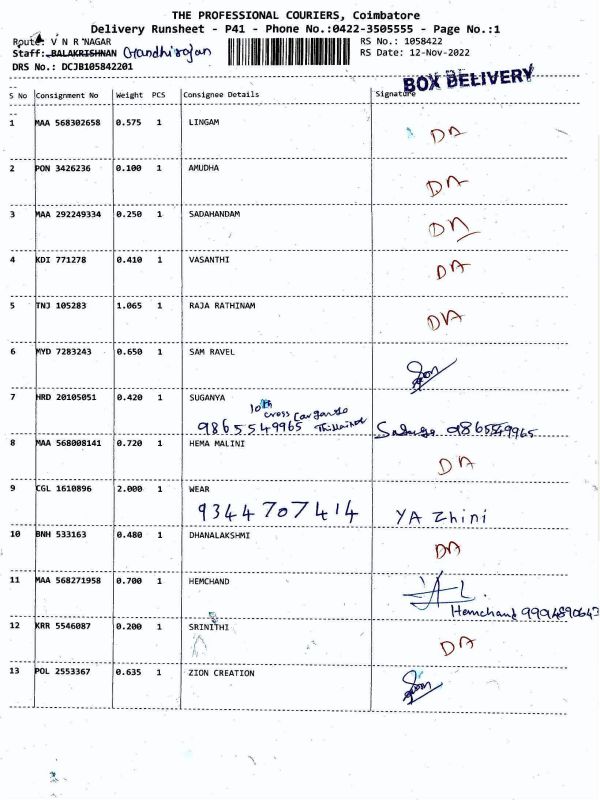 THE PROFESSIONAL COURIERS, Coimbatore
Delivery Runsheet - P41 - Phone No.:0422-3505555 - Page No.:1
Route: V N R NAGAR RS No.: 1058422
Staff: BALAKRISHNAN Gandhirajan RS Date: 12-Nov-2022
DRS No.: DCJB105842201
BOX DELIVERY
S No Consignment No Weight PCS Consignee Details Signature
1 MAA 568302658 0.575 1 LINGAM DA
2 PON 3426236 0.100 1 AMUDHA DA
3 MAA 292249334 0.250 1 SADAHANDAM DA
4 KDI 771278 0.410 1 VASANTHI DA
5 TNJ 105283 1.065 1 RAJA RATHINAM DA
6 MYD 7283243 0.650 1 SAM RAVEL
7 HRD 20105051 0.420 1 SUGANYA
10th
cross
9865549965 9865549965
8 MAA 568008141 0.720 1 HEMA MALINI DA
9 CGL 1610896 2.000 1 WEAR
9344707414 YA Zhini
10 BNH 533163 0.480 1 DHANALAKSHMI DA
11 MAA 568271958 0.700 1 HEMCHAND
Hemchand 9994890643
12 KRR 5546087 0.200 1 SRINITHI DA
13 POL 2553367 0.635 1 ZION CREATION